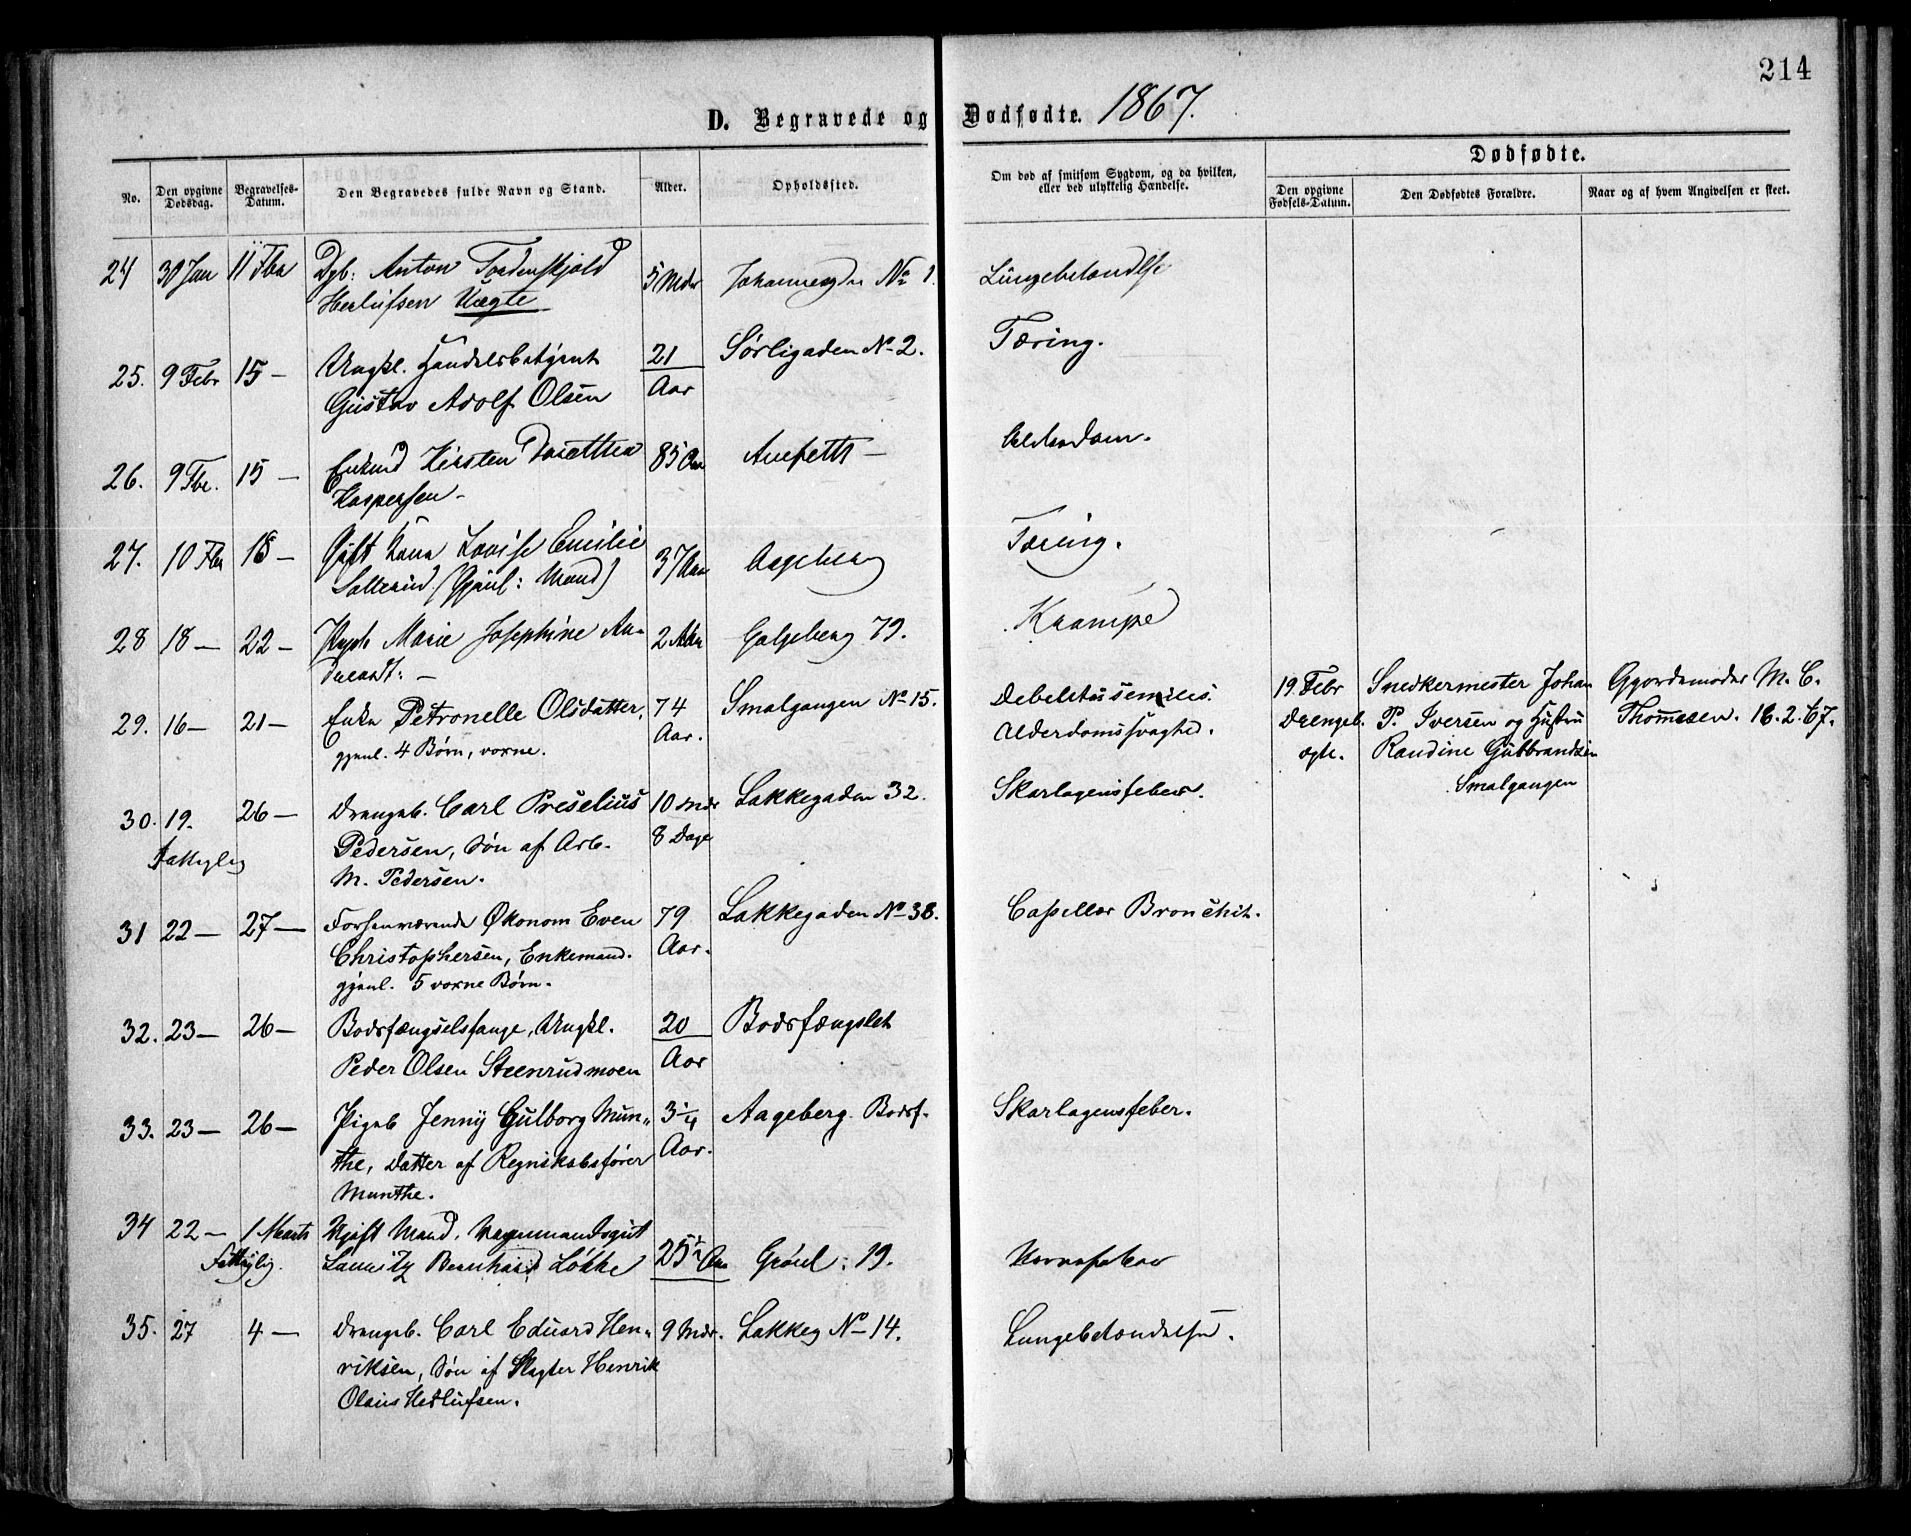 214
D. Begravede og Dødfødte. 1867.
No.
Den opgivne Dødsdag.
Begravelses-Datum.
Den Begravedes fulde Navn og Stand.
Alder.
Opholdssted.
Om død af smitsom Sygdom, og da hvilken, eller ved ulykkelig Hændelse.
Dødfødte.
Den opgivne Fødsels-Datum.
Den Dødfødtes Forældre.
Naar og af hvem Angivelsen er skeet.
24 30 Jan 11 Fbr Dgb: Anton Tordenskjold 5 Mdr No 1. Lungebetændelse
Herlufsen Uægte
25. 9 Febr 15 — Ungkl. Handelsbetjent 21 Aar Sørligaden No 2. Tæring.
Gustav Adolf Olsen
26. 9 Fbr. 15 — Kirsten Dorothea 85 Aar — Alderdom.
Kaspersen —
27. 10 Fbr 18 — Gift Kone Lovise Emilie 37 Aar Aageberg Tæring.
(Gjenl: Mand)
28 18 — 22 — Marie Josephine An- 2 Aar Galgeberg 79. Krampe
29. 16 — 21 — Enke Petronelle Olsdatter, 74 Aar. Smalgangen No 15. Debelitas senilis.
gjenl. 4 Børn, vorne. Alderdomssvaghed.
19. Febr Snedkermester Johan Gjordemoder M. C.
Drengeb. P. Iversen og Hustru Thomesen. 18.2.67.
ægte. Randine Gulbrandsen
Smalgangen
30. 19. 26 — Drengeb. Carl Preselius 10 Mdr 8 Dage Lakkegaden 32. Skarlagensfeber.
Fattiglig Pedersen, Søn af Arb.
M. Pedersen.
31 22 — 27 — Forhenværende Økonom Even 79 Aar. Lakkegaden No 38. Capillær Bronchit.
Christophersen, Enkemand.
gjenl. 5 vorne Børn.
32. 23 — 26 — Bodsfængselsfange, Ungkl. 20 Aar Bodsfængslet
Peder Olsen Steenrudmoen
33. 23 — 26 — Pigeb Jenny Gulborg Mun- 3 1/4 Aar. Aageberg. Bodsf. Skarlagensfeber.
the, Datter af Regnskabsfører
Munthe.
34 22 — 1 Marts Gift Mand, Vognmandsgut 25 1/2 Aar Grønl: 19. Nervefeber
Fattiglig. Lauritz Bernhard Løkke
35. 27 4 — Drengeb. Carl Eduard Hen- 9 Mdr. Lakkeg No 14. Lungebetændelse.
riksen, Søn af Slagter Henrik
Olaus Herlufsen.